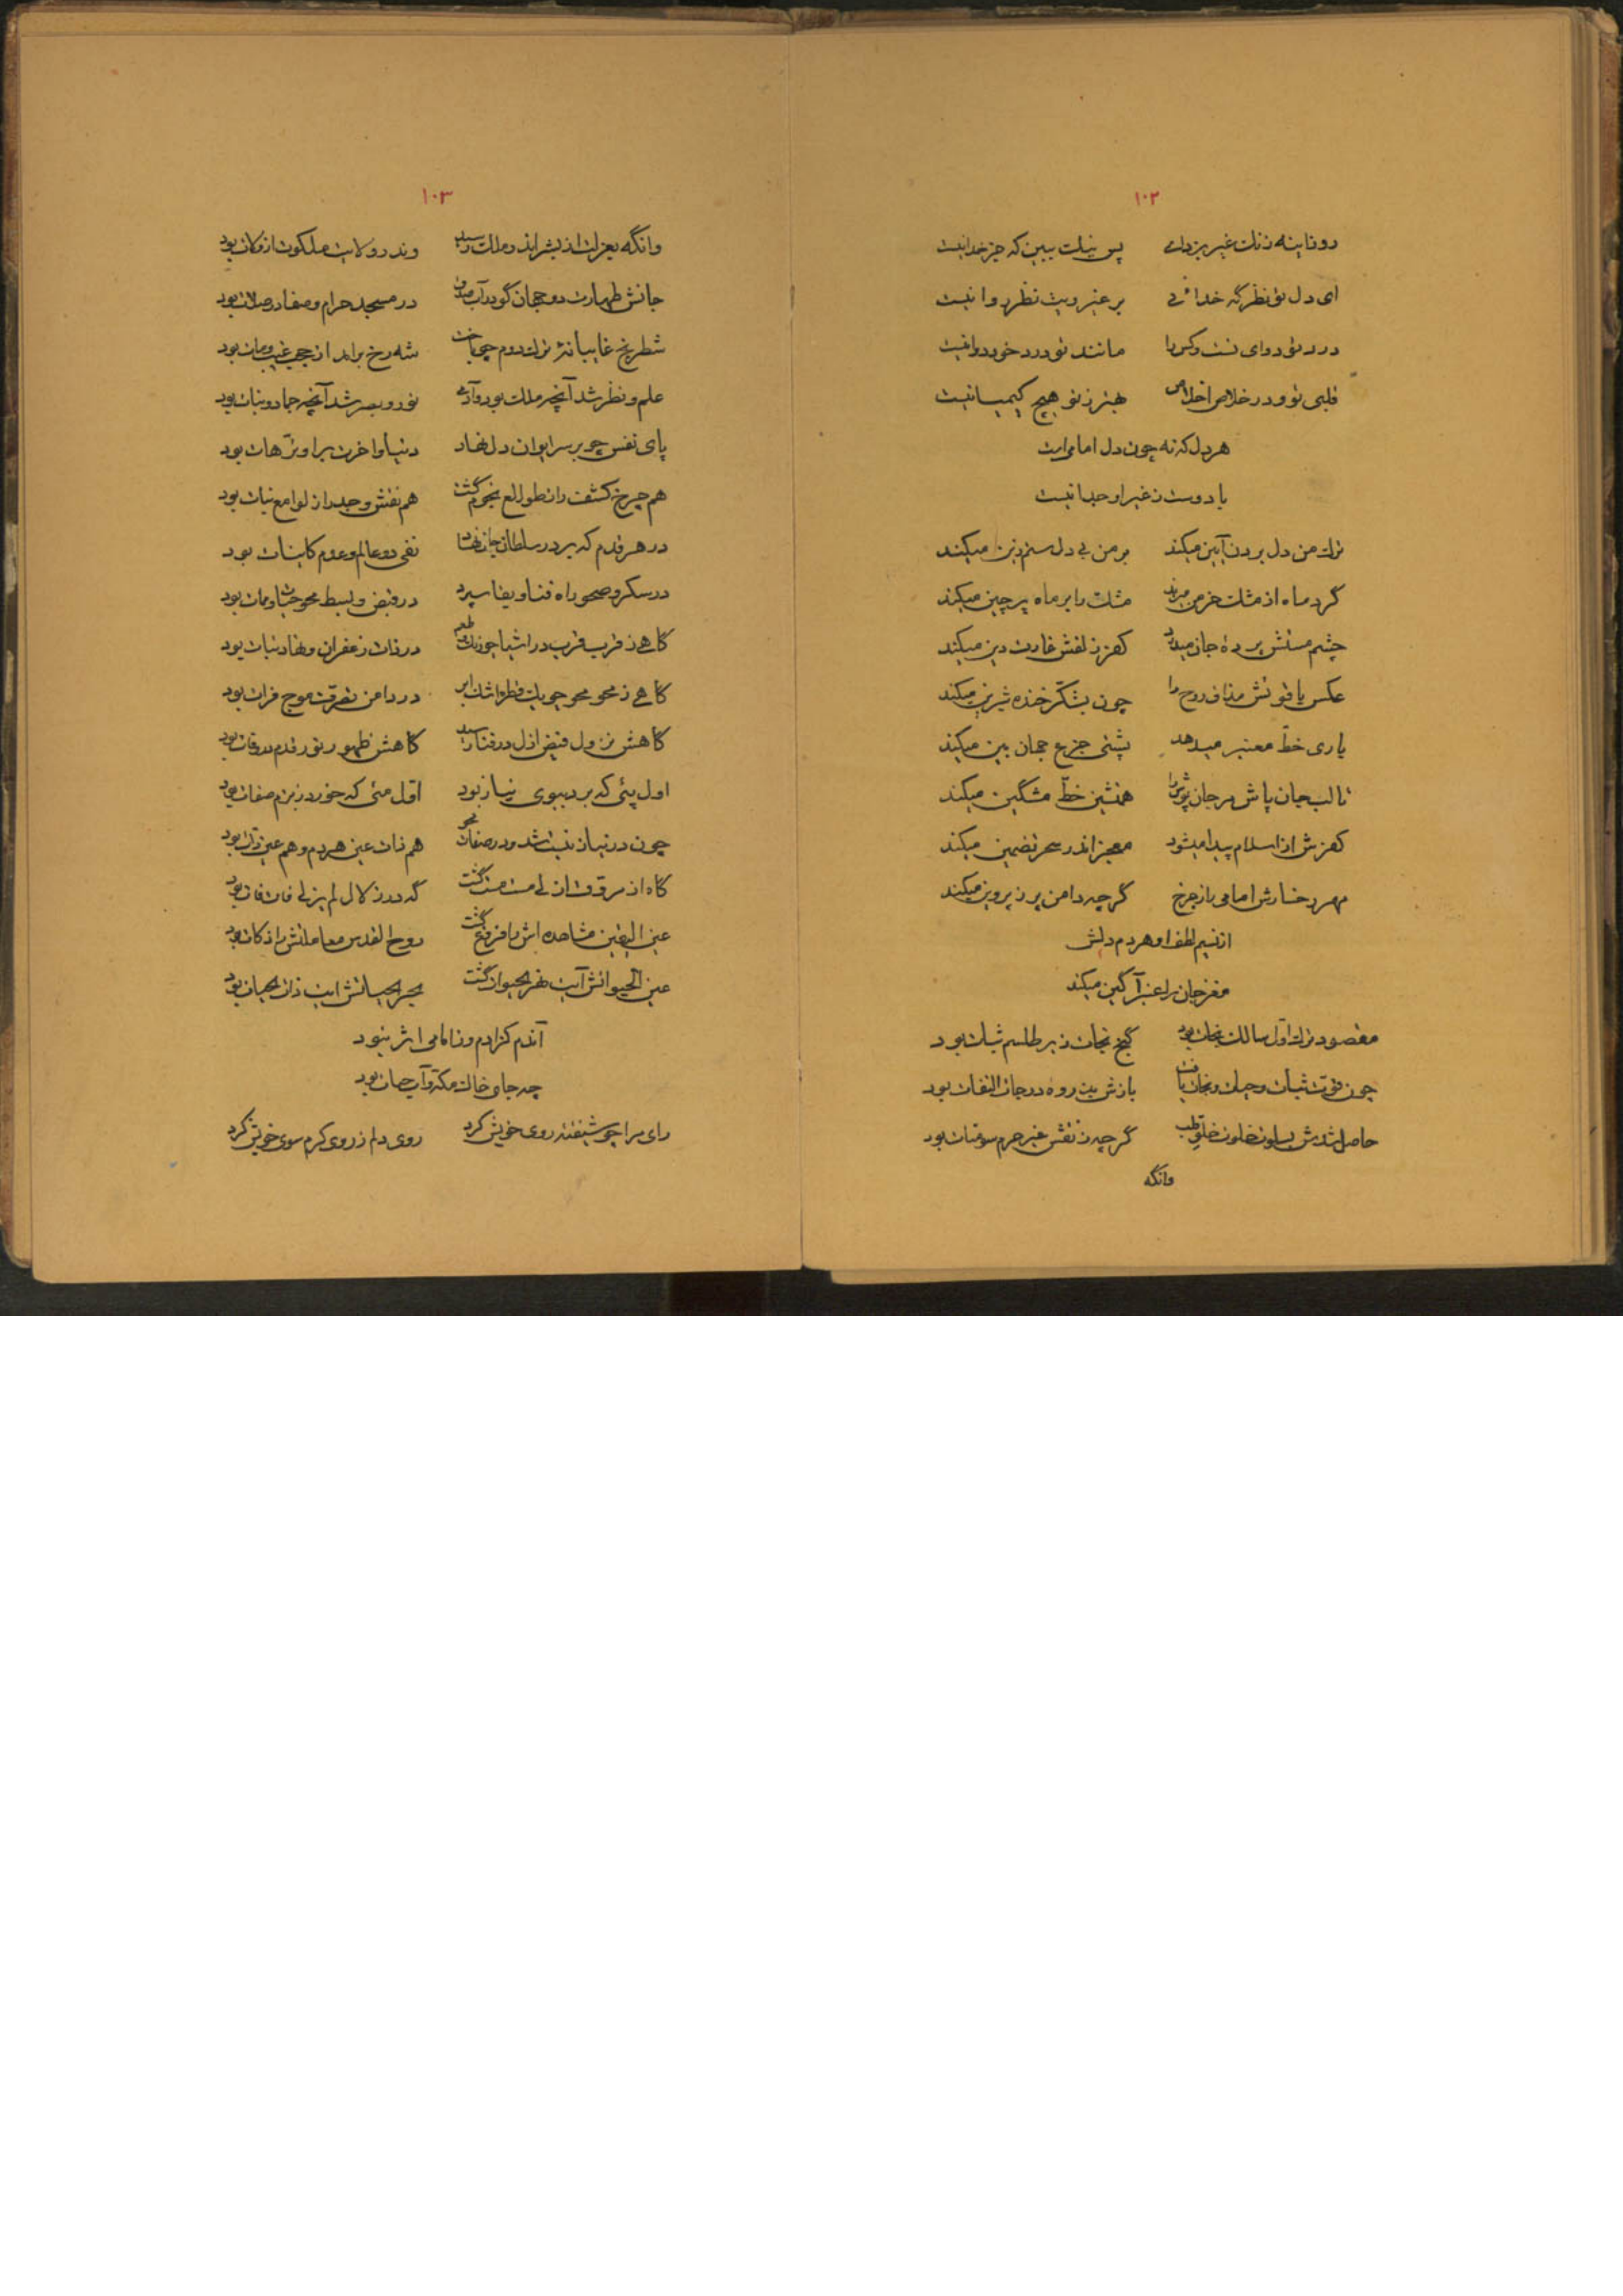 ۱۰۲
رو آینه ز زنگ غیر بزدای پس نیک ببین که جز خدا نیست
ای دل تو نظرگه خدائی بر غیر ویت نظر روا نیست
درد تو دوای تست و کس را مانند تو درد خود دوا نیست
قلبی تو و در خلاص اخلاص بهتر ز تو هیچ کیمیا نیست
هر دل که نه چون دل امامی است
با دوست ز غیر او جدا نیست
ترک من دل بردن آیین میکند بر من بی دل ستم زین میکند
گرد ماه از مشک خرمن میزند مشک را بر ماه پرچین میکند
چشم مستش پرده جان میدرد کفر زلفش غارت دین میکند
عکس یاقوتش مذاق روح را چون بشکر خنده شیرین میکند
یاری خط معنبر میدهد پشتی جزع جهان بین میکند
تا لب جان پاش مرجان پوش را همنشین خط مشگین میکند
کفرش از اسلام پیدا میشود معجز اندر سحر تضمین میکند
مهر رخسارش امامی باز چرخ گرچه دامن پر ز پروین میکند
از نسیم لطف او هر دم دلش
مغز جان را عنبر آگین میکند
مقصود ترک اول سالک نجات بود گنج نجات زیر طلسم ثبات بود
چون قوت ثبات و حیات و نجات یافت بازش بین روه درجات التفات بود
حاصل شدش بسلوت خلوت خلوّ قلب گرچه ز نقش غیر حرم سومنات بود
وانگه
۱۰۳
وانگه بعزلت از بشر اندر ملک رسید وندر ولایت ملکوت از زکات بود
جانش طهارت دو جهان کو در آب میدان در مسجد حرام و صفا در صلات بود
شطرنج غایبانه ترک دوم چو باخت شه رخ براند از حجب غیب و مات بود
علم و نظر شد آنچه ملک بود و آدمی نور و بصر شد آنچه جماد و نبات بود
پای نفس چو بر سر ایوان دل نهاد دنیا و آخرت بر او ترهات بود
هم چرخ کشف را ز طوالع نجوم گشت هم نقش وجد را ز لوامع نبات بود
در هر قدم که بر در سلطان جان نهاد نفی دو عالم و عدم کاینات بود
در سکر و صحو راه فنا و بقا سپرد در قبض و بسط محو حیات و ممات بود
گاهی ز قرب قرب در اشیا چو رنگ و طعم در ذات زعفران و نهاد نبات بود
گاهی ز محو محو چو یک قطره اشک ابر در دامن تصرقت موج فرات بود
گاهش نزول فیض ازل در فنا رسید گاهش ظهور نور قدم در وفات بود
اول پئی که برد ببوی نیاز بود اول مئی که خورد ز بزم صفات بود
چون در نیاز نیست شد و در صفات محو هم ذات عین هر دم و هم عین ذات بود
گاه از مروّق ازلی مست مست گشت گه در زلال لم یزلی فات فات بود
عین الیقین مشاهده اش را فروغ گشت روح القدس معاملتش را زکات بود
عین الحیواتش آیت نهر الحیوات گشت بحر الحیاتش آیت ذات الحیات بود
آندم کز آدم و ز امامی اثر نبود
چه جای خاک مکه و آب حیات بود
رای مرا چو شیفته روی خویش کرد روی دلم ز روی کرم سوی خویش کرد